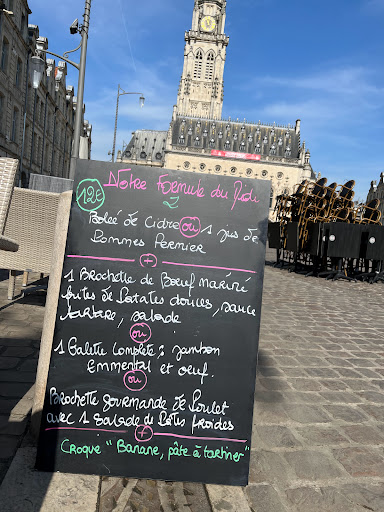 12€ Notre Formule du Midi
Bolée de Cidre ou 1 jus de
Pommes Fermier
+
1 Brochette de Bœuf mariné
frites de Patates douces, sauce
tartare, salade
ou
1 Galette Complète : jambon
Emmental et oeuf.
ou
Brochette gourmande de Poulet
avec 1 salade de Pâtes froides
+
Croque "Banane, pâte à tartiner"